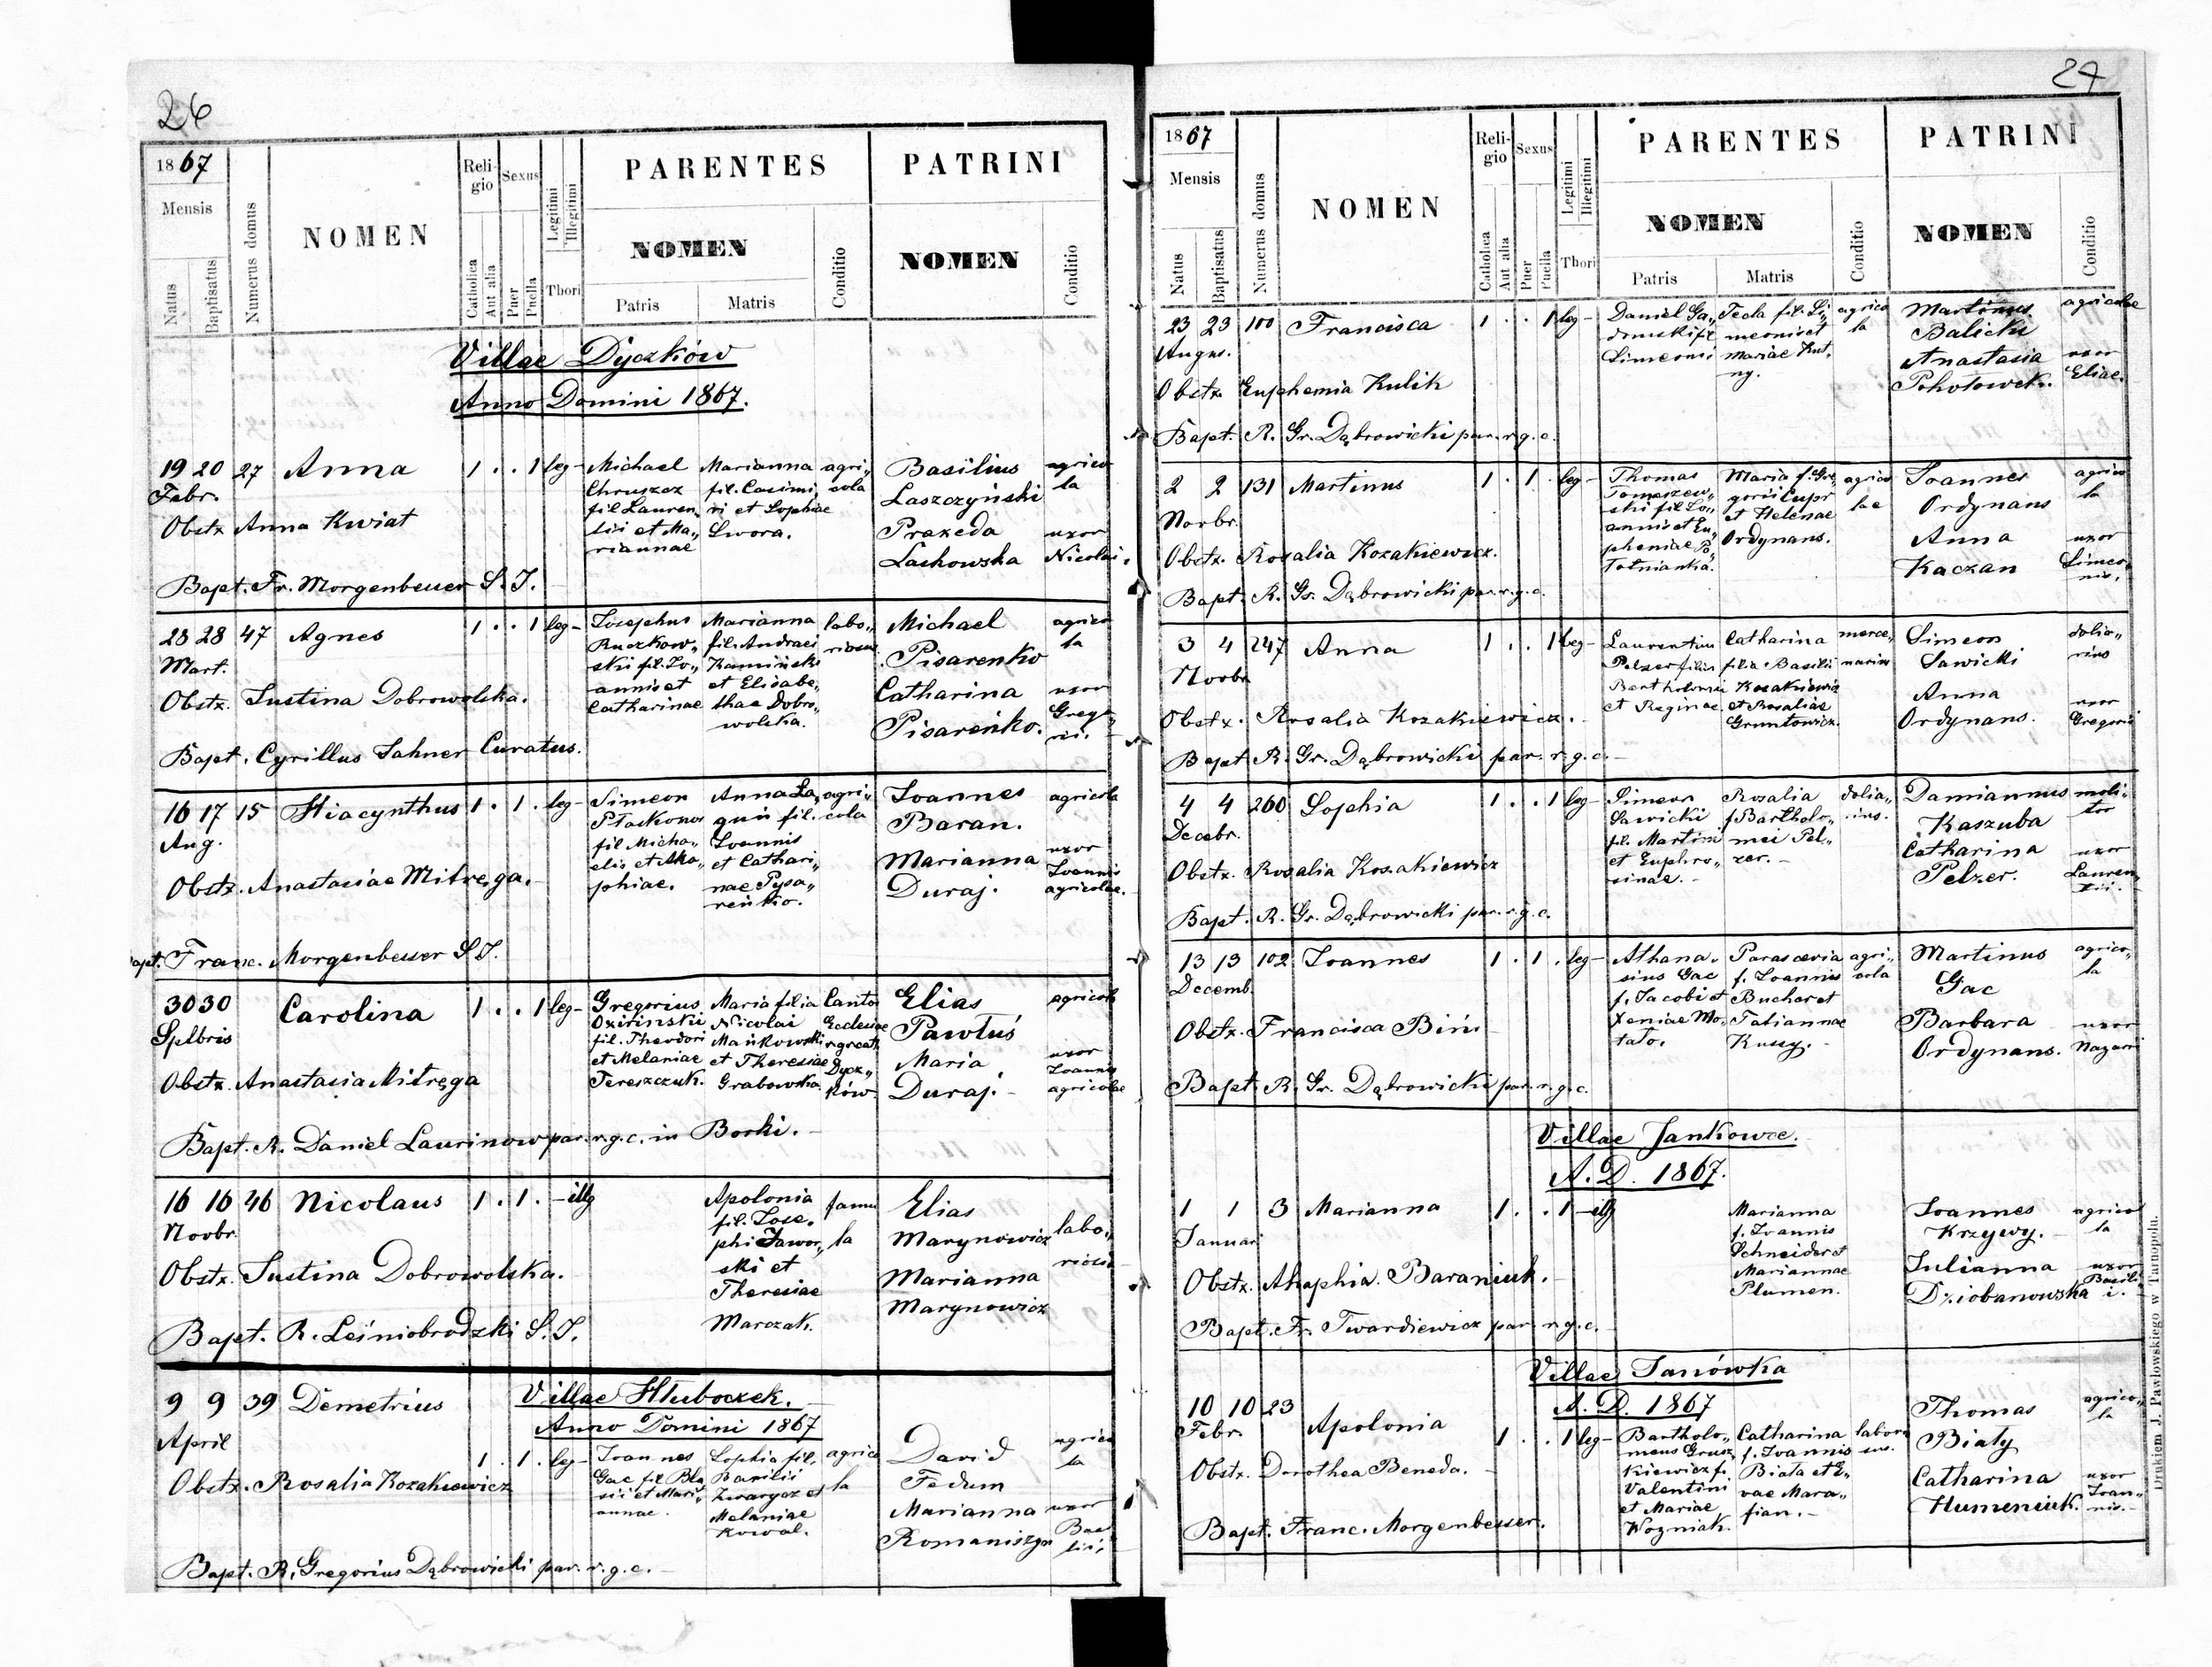 26
1867
Mensis
Natus
Baptisatus
Numerus domus
NOMEN
Religio
Catholica
Aut alia
Sexus
Puer
Puella
Legitimi
Illegitimi
Thori
PARENTES
NOMEN
Patris
Matris
Conditio
PATRINI
NOMEN
Conditio
Villae Dyczków
Anno Domini 1867.
19 20 27 Anna 1 . . 1 leg-
Febr.
Obstx Anna Kwiat
Bapt. Fr. Morgenbesser S. J.
Michael
Chruszcz
fil Lauren,,
tii et Ma,,
riannae
Marianna
fil. Casimi,,
ri et Sophiae
Swora.
agri,,
cola
Basilius
Laszczyński
Praxeda
Lachowska
agrico
la
uxor
Nicolai.
28 28 47 Agnes 1 . . 1 leg-
Mart.
Obstx. Justina Dobrowolska.
Bapt. Cyrillus Jahner Curatus.
Josephus
Ruczkow,,
ski fil. Jo,,
annis et
Catharinae
Marianna
fil. Andraei
Kamiński
et Elisabe,,
thae Dobro,,
wolska.
labo,,
riosus
Michael
Pisarenko
Catharina
Pisareńko.
agrico
la
uxor
Grego
rii.
16 17 15 Hiacynthus 1 . 1 . leg-
Aug.
Obstx. Anastasiae Mitręga.
Bapt. Franc. Morgenbesser S J.
Simeon
fil Micha,,
elis et
phiae.
Anna
fil.
Joannis
et Cathari,,
nae Pysa,,
reńko.
agri,,
cola
Joannes
Baran.
Marianna
Duraj.
agricola
uxor
Joannis
agricolae.
30 30 Carolina 1 . . 1 leg-
Sptbris
Obstx. Anastasia Mitręga
Bapt. R. Daniel Laurinow par. r. g. c. in Borki.
Gregorius
Ozirinski
fil. Theodori
et Melaniae
Tereszczuk.
Maria filia
Nicolai
Mańkowski
et Theresiae
Grabowska.
Cantor
Ecclesiae
Dycz,,
ków
Elias
Pawluś
Maria
Duraj.
agricola
uxor
Joannis
agricolae
16 16 46 Nicolaus 1 . 1 . - illg
Novbr.
Obstx. Justina Dobrowolska.
Bapt. R. Leśniobrodzki S. J.
Apolonia
fil. Jose,,
phi Jawor,,
ski et
Theresiae
Marczak.
famu
la
Elias
Marynowicz
Marianna
Marynowicz
labo,,
riosi
Villae Hluboczek.
Anno Domini 1867
9 9 39 Demetrius
April 1 . 1 . leg-
Obstx. Rosalia Kozakiewicz
Bapt. R. Gregorius Dąbrowicki par. r. g. c.
Joannes
Gac fil Bla
sii et Mari,,
annae.
Sophia fil.
Basilii
Zwarycz et
Melaniae
Kowal.
agrico
la
David
Fedum
Marianna
Romaniszyn
agrico
la
uxor
Bas
lii.
27
1867
Mensis
Natus
Baptisatus
Numerus domus
NOMEN
Religio
Catholica
Aut alia
Sexus
Puer
Puella
Legitimi
Illegitimi
Thori
PARENTES
NOMEN
Patris
Matris
Conditio
PATRINI
NOMEN
Conditio
23 23 100 Francisca 1 . . 1 leg-
Augus.
Obstx. Euphemia Kulik
Bapt. R. Gr. Dąbrowicki par. r. g. c.
Daniel
Simeonis
Tecla fil. Si,,
meonis et
Mariae
agrico
la
Martinus
Balicki
Anastasia
agricolae
uxor
Eliae.
2 2 131 Martinus 1 . 1 . leg-
Novbr.
Obstx. Rosalia Kozakiewicz.
Bapt. R. Gr. Dąbrowicki par. r. g. c.
Thomas
Tomaszew,,
ski fil Jo,,
annis et Eu,,
pheniae
Maria f. Gre,,
gorii Cupr
et Helenae
Ordynans.
agrico
lae
Joannes
Ordynans
Anna
Kaczan
agrico
la
uxor
Simeo
nis.
3 4 247 Anna 1 . . 1 leg-
Novbr
Obstx. Rosalia Kozakiewicz.
Bapt R. Gr. Dąbrowicki par. r. g. c.
Laurentius
Pelzer filius
Bartholomei
et Reginae
Catharina
filia Basilii
Kozakiewicz
et Rosaliae
Gruntowicz.
merce,,
narius
Simeon
Sawicki
Anna
Ordynans.
dolia,,
rius
uxor
Gregorii
4 4 260 Sophia 1 . . 1 leg-
Decebr.
Obstx. Rosalia Kozakiewicz
Bapt. R. Gr. Dąbrowicki par. r. g. c.
Simeon
Sawicki
fil. Martini
et Euphro,,
sinae.
Rosalia
f Bartholo,,
mei Pel,,
zer.
dolia,,
rius.
Damiannus
Kaszuba
Catharina
Pelzer.
moli,,
tor
uxor
Lauren
tii.
13 13 102 Joannes 1 . 1 . leg-
Decemb.
Obstx. Francisca Biń
Bapt. R. Gr. Dąbrowicki par. r. g. c.
Athana,,
sius Gac
f. Jacobi et
Xeniae Mo,,
tato.
Parascevia
f. Joannis
Bucher et
Tatiannae
Kussy.
agri,,
cola
Martinus
Gac
Barbara
Ordynans.
agrico,,
la
uxor
Nazarii
Villae Jankowce.
A. D. 1867.
1 1 3 Marianna 1 . . 1 - illg
Januar.
Obstx. Ahaphia Baraniuk.
Bapt. Fr. Twardiewicz par. r. g. c.
Marianna
f. Joannis
Schneider et
Mariannae
Plumen.
Joannes
Krzywy.
Julianna
Dziobanowska
agrico
la
uxor
Basili
i.
Villae Janówka
A. D. 1867
10 10 23 Apolonia 1 . . 1 leg-
Febr.
Obstx. Dorothea Beneda.
Bapt. Franc. Morgenbesser.
Bartholo,,
meus Grusz
kiewicz f.
Valentini
et Mariae
Wozniak.
Catharina
f. Joannis
Biała et E,,
vae Mara,,
fian.
labori
sus.
Thomas
Biały
Catharina
Humeniuk.
agrico,,
la
uxor
Joan,,
nis.
Drukiem J. Pawłowskiego w Tarnopolu.